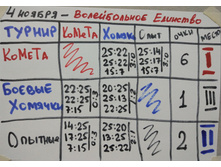 4 ноября - Волейбольное Единство
ТУРНИР КоМеТА Хомячки Опыт ОЧКИ МЕСТО
КоМеТА 25:22 25:22 15:7 3:0 25:14 25:17 15:7 3:0 6 I
БОЕВЫЕ ХОМЯЧКИ 22:25 22:25 7:15 0:3 20:25 25:13 1 III
ОПЫТНЫЕ 14:25 17:25 7:15 0:3 25:20 2 II